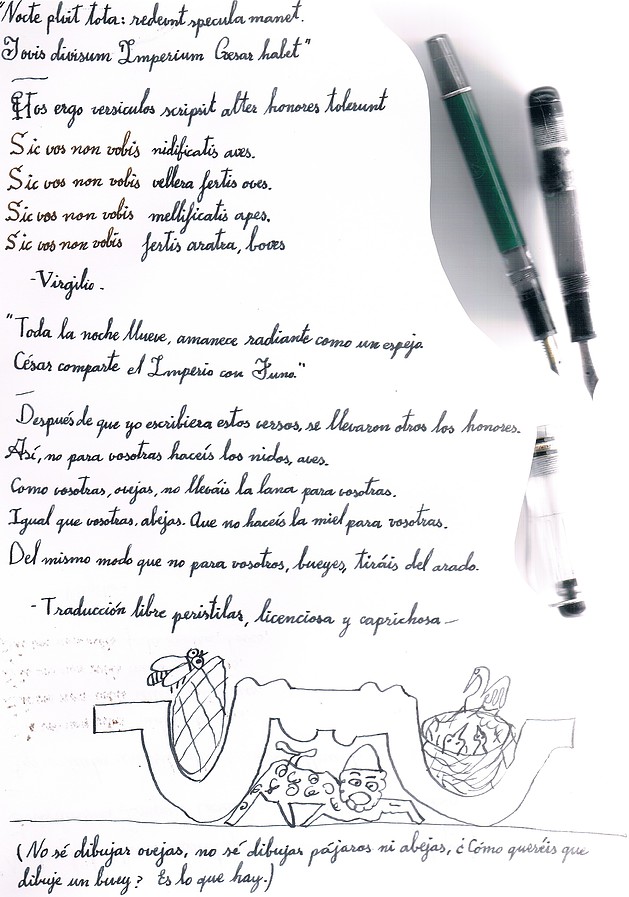 "Nocte pluit tota: redeunt specula manet.
Jovis divisum Imperium Cæsar habet"
Hos ergo versiculos scripsit alter honores tolerunt
Sic vos non vobis nidificatis aves.
Sic vos non vobis vellera fertis oves.
Sic vos non vobis mellificatis apes.
Sic vos non vobis fertis aratra, boves
-Virgilio-
"Toda la noche llueve, amanece radiante como un espejo
César comparte el Imperio con Juno."
Después de que yo escribiera estos versos, se llevaron otros los honores.
Así, no para vosotras haceís los nidos, aves.
Como vosotras, ovejas, no lleváis la lana para vosotras.
Igual que vosotras, abejas. Que no haceís la miel para vosotras.
Del mismo modo que no para vosotros, bueyes, tiráis del arado.
-Traducción libre peristilas, licenciosa y caprichosa-
(No sé dibujar ovejas, no sé dibujar pájaros ni abejas, ¿Cómo queréis que
dibuje un buey? Es lo que hay.)